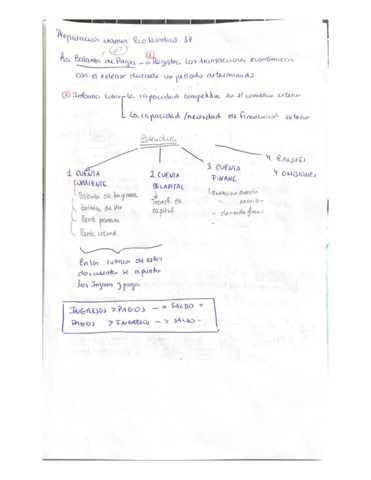 Preparación examen Eco Mundial
La Balanza de Pagos → Registra las transacciones económicas
con el exterior durante un período determinado
Informa sobre la capacidad competitiva en el comercio exterior
La capacidad/necesidad de financiación exterior
Estructura
1. CUENTA CORRIENTE
Balanza de
Balanza de
Renta primaria
Renta second
2. CUENTA DE CAPITAL
Transf. de capital
3. CUENTA FINANC.
Inversión directa
4. ERRORES
Y OMISIONES
En las de estos
documentos se apuntan
los Ingresos y pagos
INGRESOS > PAGOS → SALDO +
PAGOS > INGRESOS → SALDO -